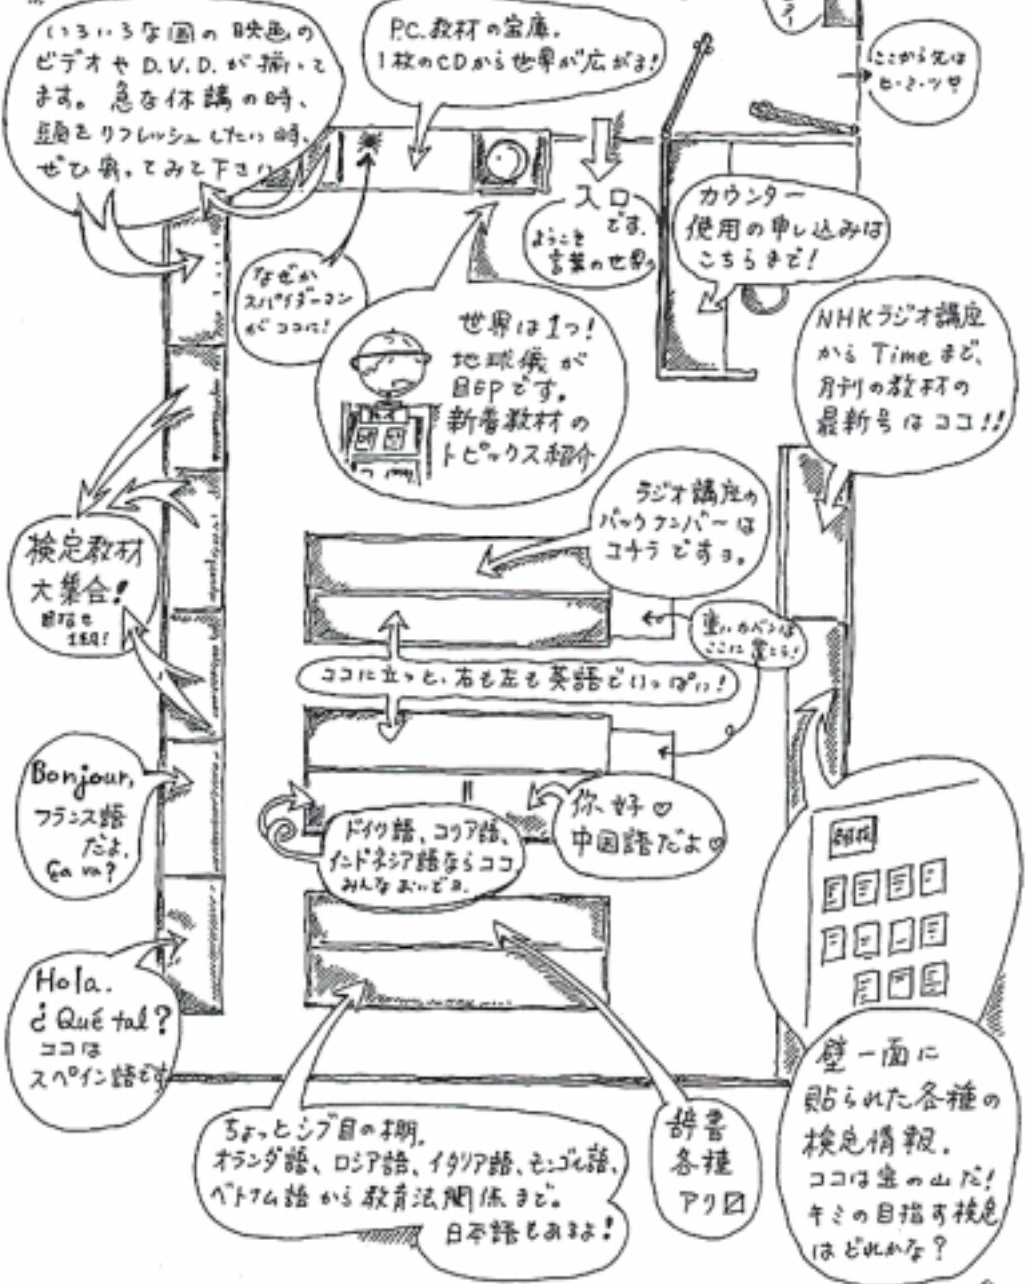 いろいろな国の映画の
ビデオやD.V.D.が揃って
ます。急な休講の時、
頭をリフレッシュしたい時、
ぜひ寄ってみて下さい
P.C.教材の宝庫.
1枚のCDから世界が広がる!
ここから先は
入口
です.
ようこそ
言葉の世界へ
カウンター
使用の申し込みは
こちらまで!
なぜか
スパイダーマン
がココに!
世界は1つ!
地球儀が
目印です。
新着教材の
トピックス紹介
NHKラジオ講座
から Timeまで、
月刊の教材の
最新号はココ!!
ラジオ講座の
バックナンバーは
コチラですョ。
検定教材
大集合!
目指せ
1級!
重いカバンは
ここに置こう!
ココに立つと、右も左も英語でいっぱい!
Bonjour,
フランス語
だよ.
Ça va?
你好♡
中国語だよ♡
ドイツ語、コリア語、
インドネシア語ならココ
みんなおいでョ.
Hola.
¿Qué tal?
ココは
スペイン語です
ちょっとシブ目の棚.
オランダ語、ロシア語、イタリア語、モンゴル語、
ベトナム語から教育法関係まで。
日本語もあるよ!
辞書
各種
アリ〼
壁一面に
貼られた各種の
検定情報.
ココは宝の山だ!
キミの目指す検定
はどれかな?